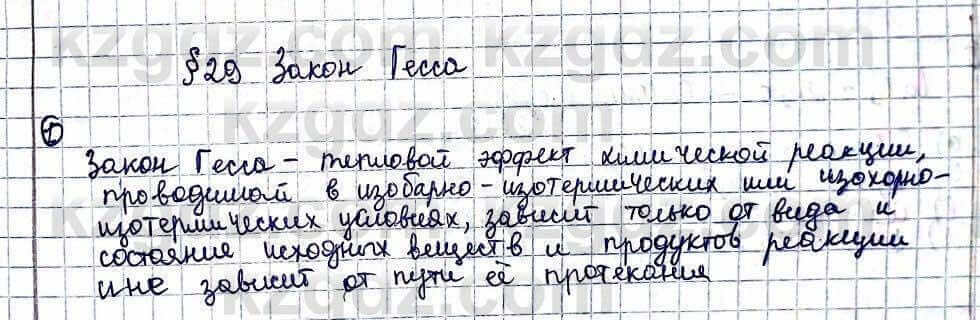 §29 Закон Гесса
①
Закон Гесса - тепловой эффект химической реакции,
проводимой в изобарно-изотермических или изохорно-
изотермических условиях, зависит только от вида и
состояние исходных веществ и продуктов реакции
и не зависит от пути её протекания
kzgdz.com kzgdz.com
kzgdz.com
kzgdz.com kzgdz.com